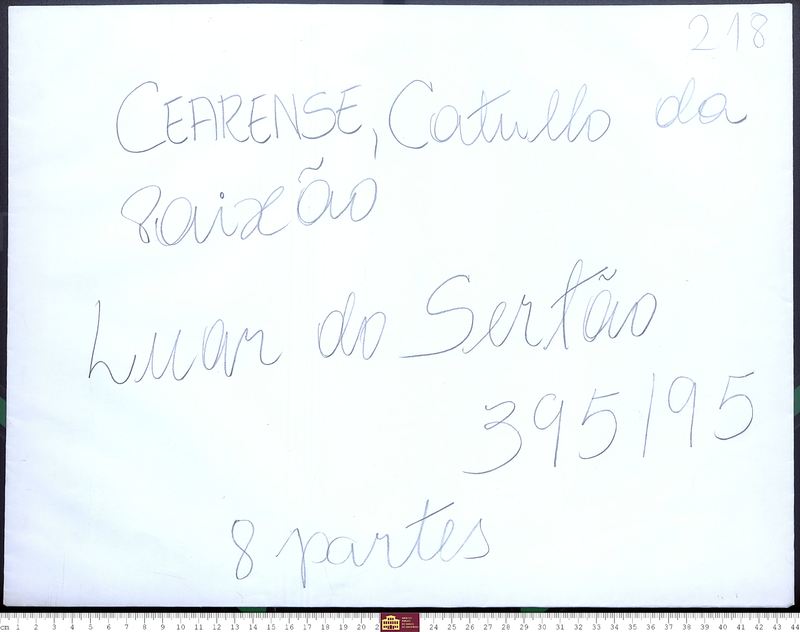 218
CEARENSE, Catullo da
Paixão
Luar do Sertão
395/95
8 partes
cm 1 2 3 4 5 6 7 8 9 10 11 12 13 14 15 16 17 18 19 20 2 24 25 26 27 28 29 30 31 32 33 34 35 36 37 38 39 40 41 42 43 44